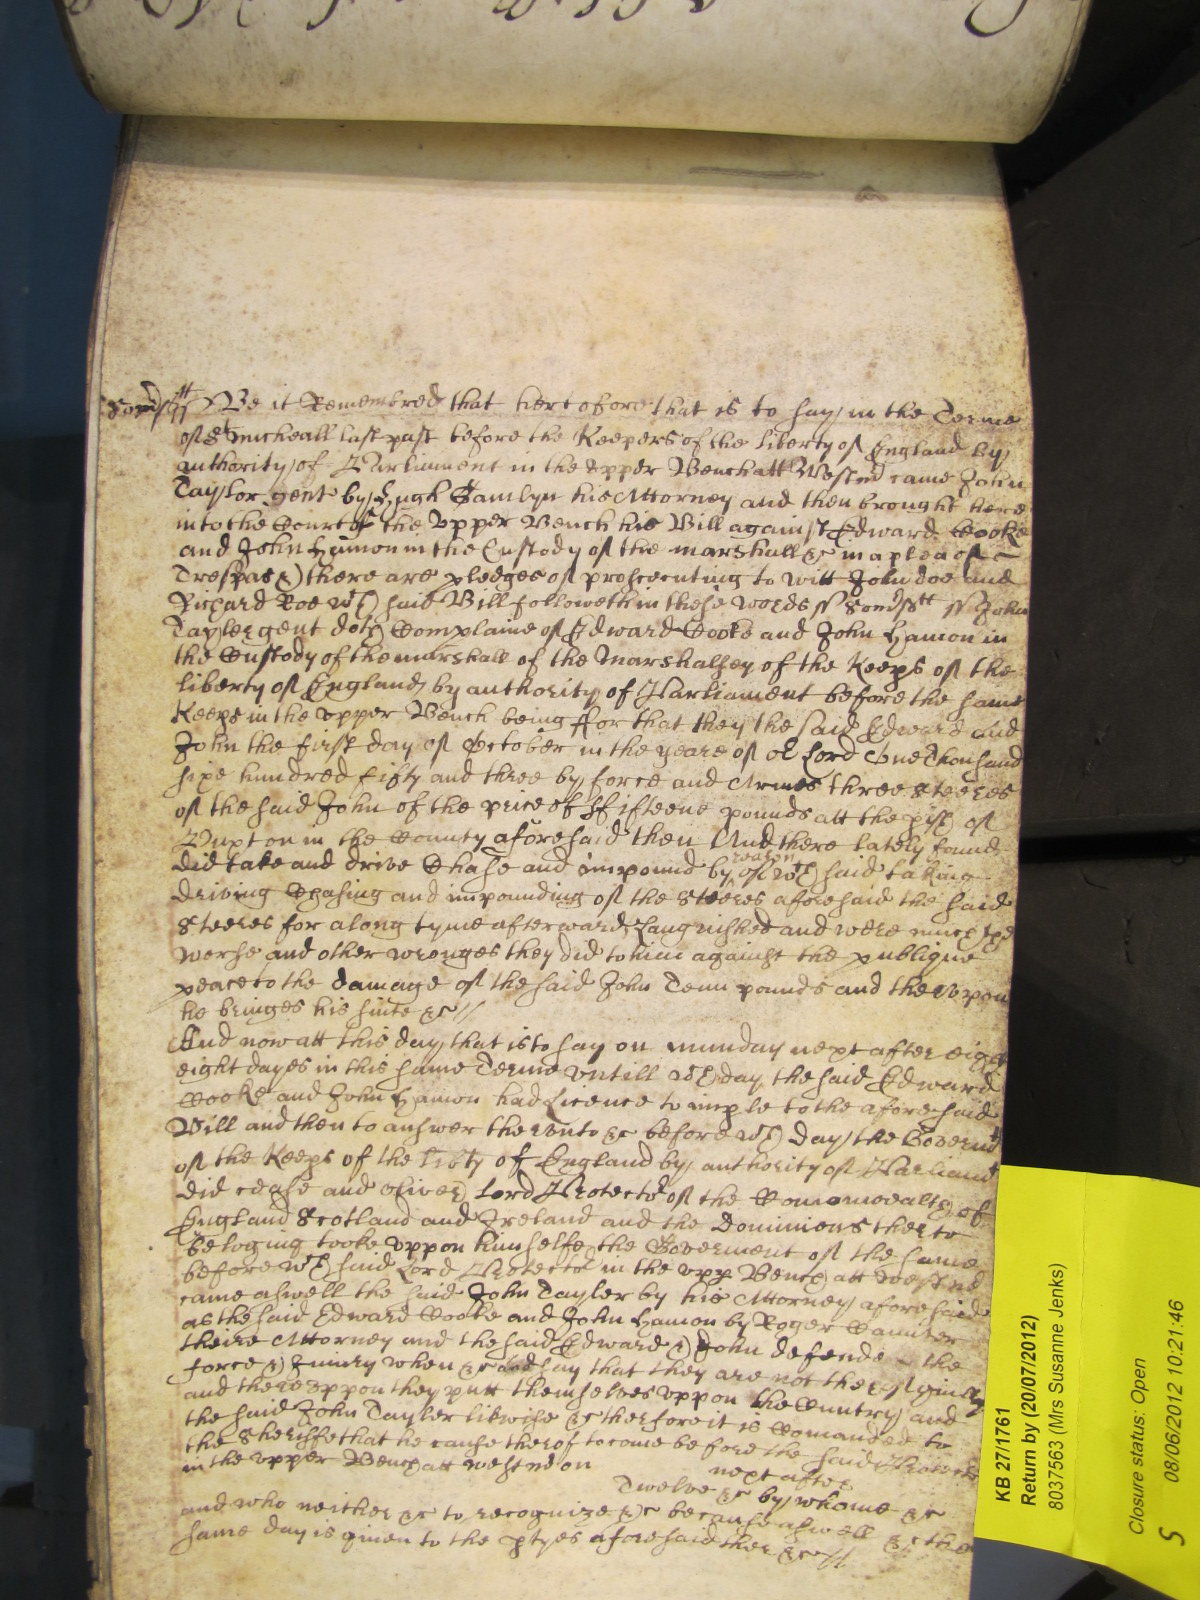 Somsst ss Be it Remembred that heretofore that is to say in the Terme
of St Micheall last past before the Keepers of the liberty of England by
authority of Parliament in the upper Bench att Westmr came John
Taylor gent by Hugh Hamlyn his Attorney and then brought here
into the Court of the Upper Bench his Bill against Edward Cooke
and John Hamon in the Custody of the marshall &c in a plea of
Trespas &) there are pledges of prosecuting to witt John doe and
Richard Roe wch said Bill followeth in these words ss Somsstt ss John
Tayler gent doth Complaine of Edward Cooke and John Hamon in
the Custody of the marshall of the Marshalsey of the Keeps of the
liberty of England by authority of Parliament before the same
Keeps in the upper Bench being ffor that they the said Edward and
John the first day of October in the yeare of or Lord One Thousand
sixe hundred fifty and three by force and Armes three Steeres
of the said John of the price of ffifteene pounds att the pish of
in the County aforesaid then And there lately found
did take and drive Chase and impound by reason of wch said taking
driving Chasing and impounding of the Steeres aforesaid the said
Steeres for a long tyme afterwards Languished and were much the
worse and other wronges they did to him against the publique
peace to the damage of the said John Tenn pounds and thereuppon
he bringes his suite &c //
And now att this day that is to say on munday next after eight
eight dayes in this same Terme untill wch day the said Edward
Cooke and John Hamon had Licence to imple to the aforesaid
Bill and then to answer thereunto &c before wch day the Governt
of the Keeps of the libty of England by authority of Parliamt
did cease and Oliver Lord Protector of the Comomwealth of
England Scotland and Ireland and the Dominions therto
beloging tooke uppon himselfe the Goverment of the same
before wch said Lord Protector in the upp Bench att Westmr
came aswell the said John Tayler by his Attorney aforesaide
as the said Edward Cooke and John Hamon by Roger
theire Attorney and the said Edward &) John defende the
force &) Iniury when &c and say that they are not thereof giulty
and thereuppon they putt themselves uppon the Cuntry and
the said John Tayler likwise &c therfore it is Comanded to
the Sheriffe that he cause therof to come before the said Protector
in the upper Bench att westmr on next after
Twelve &c by whome &c
and who neither &c to recognize &c because aswell &c the
same day is given to the ptyes aforesaid ther &c //
KB 27/1761
Return by (20/07/2012)
8037563 (Mrs Susanne Jenks)
Closure status: Open
08/06/2012 10:21:46
S